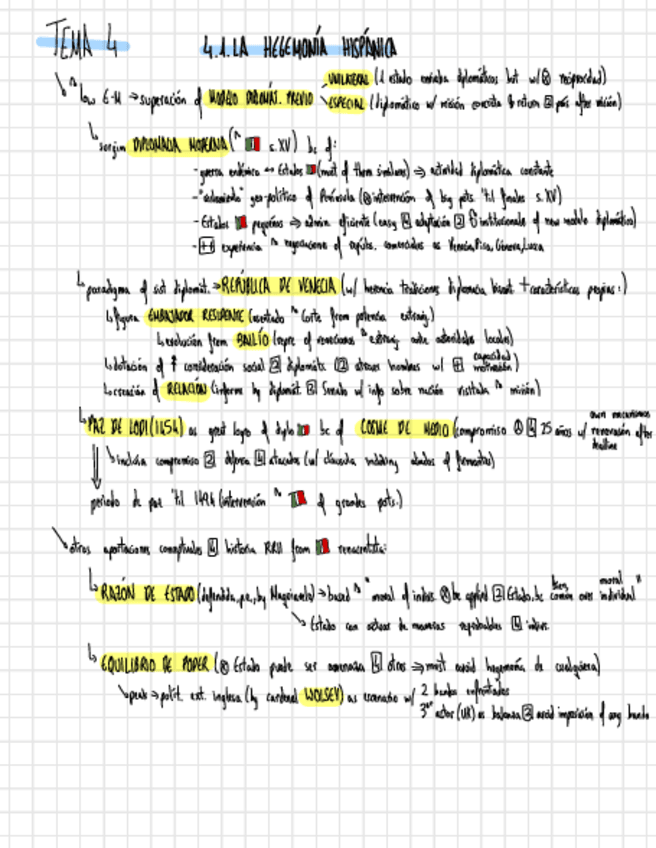 TEMA 4 4.1. LA HEGEMONÍA HISPÁNICA
UNILATERAL (1 estado enviaba diplomáticos but w/ ⊗ reciprocidad)
low E-M → superación of MODELO DIPLOMÁT. PREVIO
ESPECIAL (diplomático w/ misión concreta & return 2 país after misión)
surgim DIPLOMACIA MODERNA (^ 🇮🇹 s.XV) bc of:
- guerra endémica ↔ Estados 🇮🇹 (most of them similares) ⇒ actividad diplomática constante
- "aislamiento" geo-político of Península (⊗ intervención of big pots. 'til finales s. XV)
- Estados 🇮🇹 pequeños ⇒ admin. eficiente (easy 4 adaptación 2 institucionale of new modelo diplomático)
- ++ experiencia ^ negociaciones of repúbs. comerciales as Venecia, Pisa, Génova, Lucca
paradigma of sist diplomát. → REPÚBLICA DE VENECIA (w/ herencia tradiciones diplomacia bizant + características propias:)
figura EMBAJADOR RESIDENTE (asentado ^ Corte from potencia extranj.)
evolución from BAILÍO (repre of venecianos ^ extranj. ante autoridades locales)
dotación of ↑ consideración social 2 diplomátic (2 atraer hombres w/ + capacidad motivación)
creación of RELACIÓN (informe by diplomát. 2 Senado w/ info sobre nación visitada ^ misión)
PAZ DE LODI (1454) as great logro of diplo 🇮🇹 bc of COSME DE MEDICI (compromiso 4 25 años w/ own mecanismos renovación after deadline
incluía compromiso 2 defensa 4 atacados (w/ cláusula aliados of firmantes)
periodo de paz 'til 1494 (intervención ^ 🇮🇹 of grandes pots.)
otras aportaciones conceptuales 4 historia RRII from 🇮🇹 renacentista:
RAZÓN DE ESTADO (defendida, p.e., by Maquiavelo) → based ^ "moral of indivs ⊗ be applied 2 Estado, bc bien común over moral individual"
Estado can actuar de maneras reprobables 4 indivs.
EQUILIBRIO DE PODER (⊗ Estado puede ser amenaza 4 otros ⇒ must avoid hegemonía de cualquiera)
peak → polít. ext. inglesa (by cardenal WOLSEY) as escenario w/ 2 bandos enfrentados
3er actor (UK) as balanza 2 avoid imposición of any bando